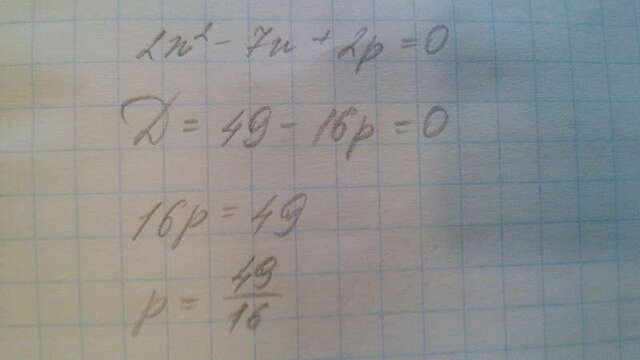 2x² - 7x + 2p = 0
D = 49 - 16p = 0
16p = 49
p = 49/16